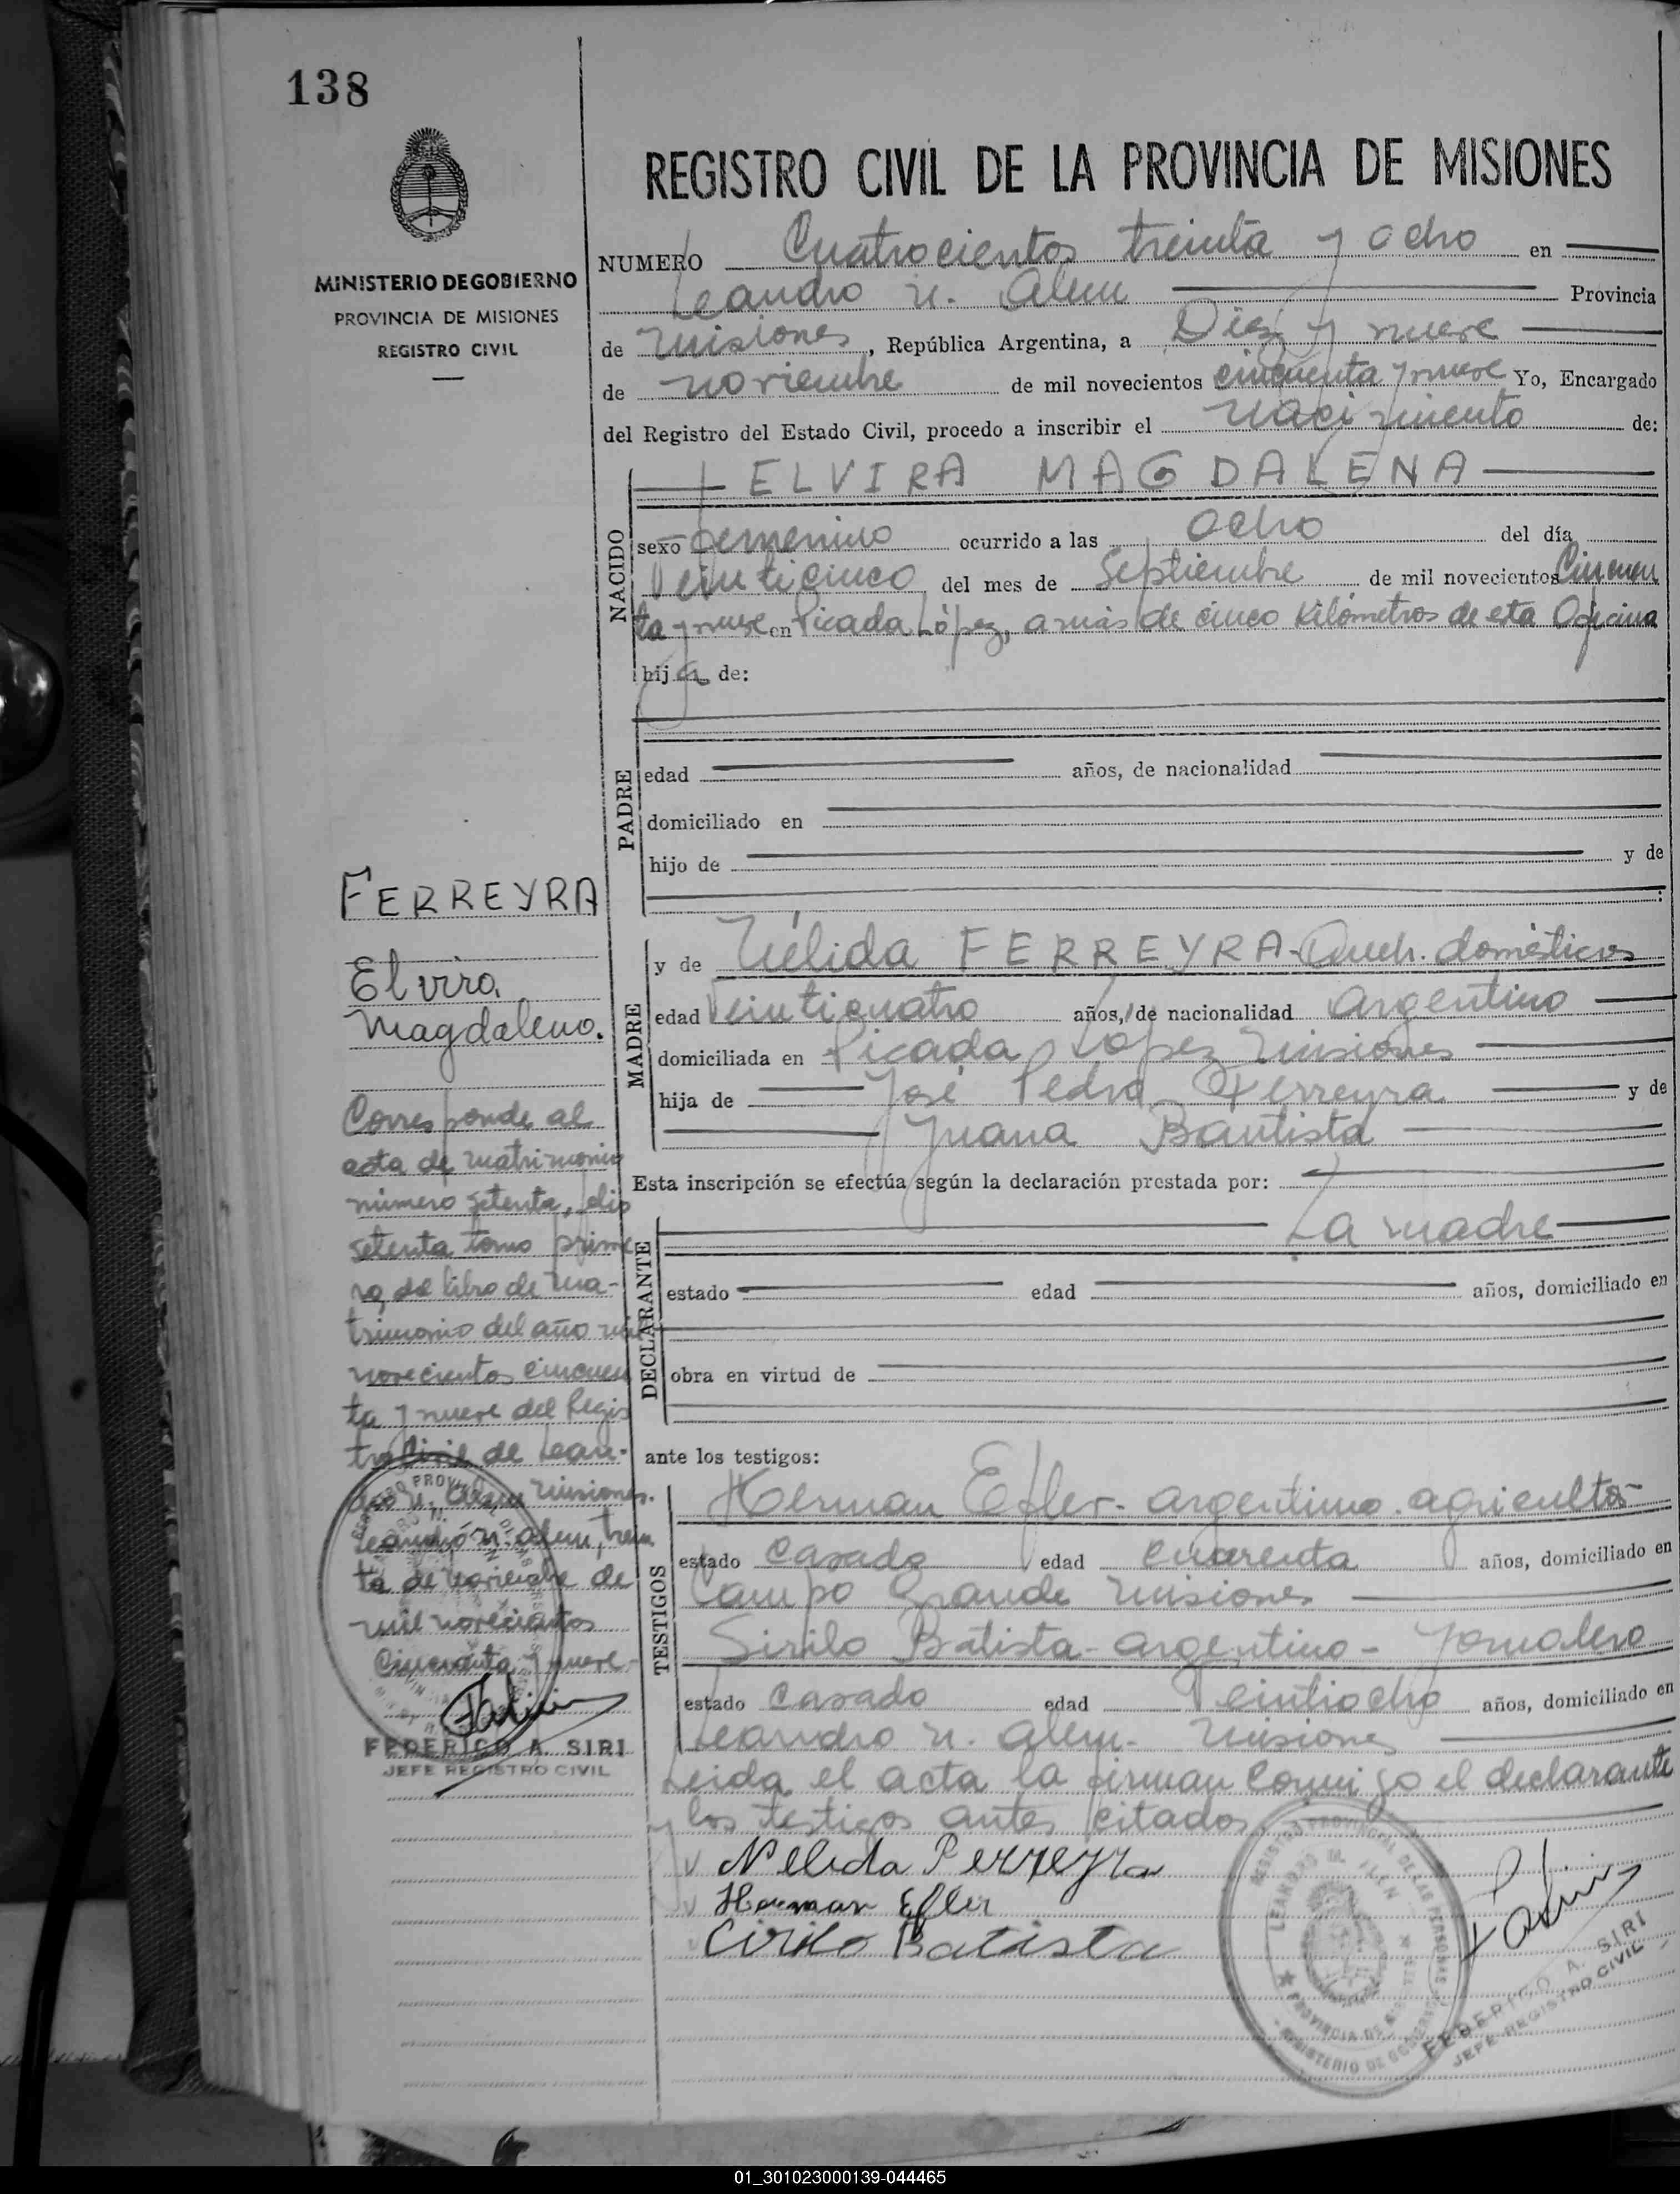 138
MINISTERIO DE GOBIERNO
PROVINCIA DE MISIONES
REGISTRO CIVIL
REGISTRO CIVIL DE LA PROVINCIA DE MISIONES
NUMERO Cuatrocientos treinta y ocho en
Leandro N. Alem Provincia
de Misiones, República Argentina, a Diez y nueve
de noviembre de mil novecientos cincuenta y nueve Yo, Encargado
del Registro del Estado Civil, procedo a inscribir el nacimiento de:
NACIDO
ELVIRA MAGDALENA
sexo femenino ocurrido a las ocho del día
Veinticinco del mes de Septiembre de mil novecientos Cincuen
ta y nueve en Picada López, a más de cinco Kilómetros de esta Oficina
hija de:
PADRE
edad años, de nacionalidad
domiciliado en
hijo de y de
:
FERREYRA
Elvira
Magdalena.
MADRE
y de Nélida FERREYRA- Queh. domésticos
edad Veinticuatro años, de nacionalidad argentino
domiciliada en Picada López Misiones
hija de José Pedro Ferreyra y de
Juana Bautista
Esta inscripción se efectúa según la declaración prestada por:
DECLARANTE
La madre
estado edad años, domiciliado en
obra en virtud de
Corresponde al
acta de matrimonio
número setenta, folio
setenta tomo prime
ro, del libro de Ma-
trimonio del año mil
novecientos cincuen
ta y nueve del Regis
tro Civil de Lean-
dro N. Alem Misiones.
Leandro N. Alem, trein
ta de noviembre de
mil novecientos
Cincuenta y nueve-
FEDERICO A. SIRI
JEFE REGISTRO CIVIL
ante los testigos:
TESTIGOS
Herman Efler- argentino. agricultor
estado Casado edad cuarenta años, domiciliado en
Campo Grande Misiones
Sirilo Batista- argentino- Jornalero
estado Casado edad Veintiocho años, domiciliado en
Leandro N. Alem- Misiones
Leida el acta la firman conmigo el declarante
y los testigos antes citados
Nelida Ferreyra
Herman Efler
Cirilo Batista
FEDERICO A. SIRI
JEFE REGISTRO CIVIL
01_301023000139-044465